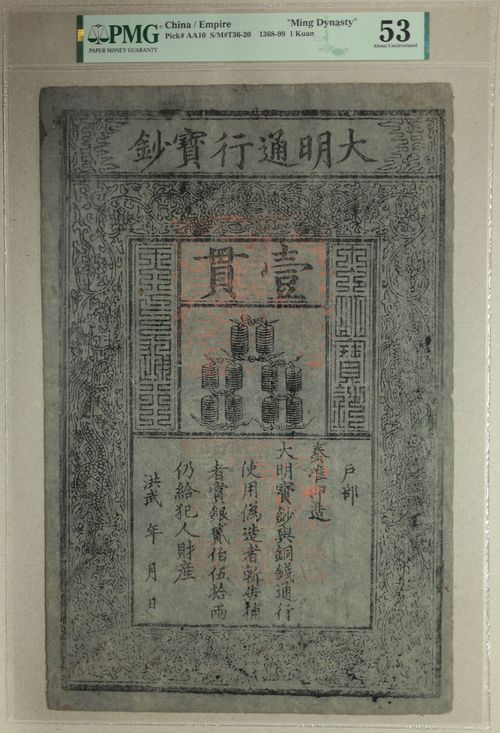 PMG
PAPER MONEY GUARANTY
China / Empire "Ming Dynasty"
Pick# AA10 S/M#T36-20 1368-99 1 Kuan
53
About Uncirculated
大明通行寶鈔
壹貫
戶部
奏准印造
大明寶鈔與銅錢通行
使用偽造者斬告捕
者賞銀貳伯伍拾兩
仍給犯人財産
洪武 年 月 日